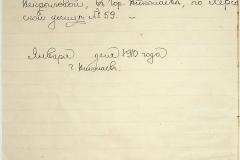 въ гор. Николаевѣ, по Херсо
ской улицѣ № 59. —
Января дня 1910 года
г. Николаевъ.